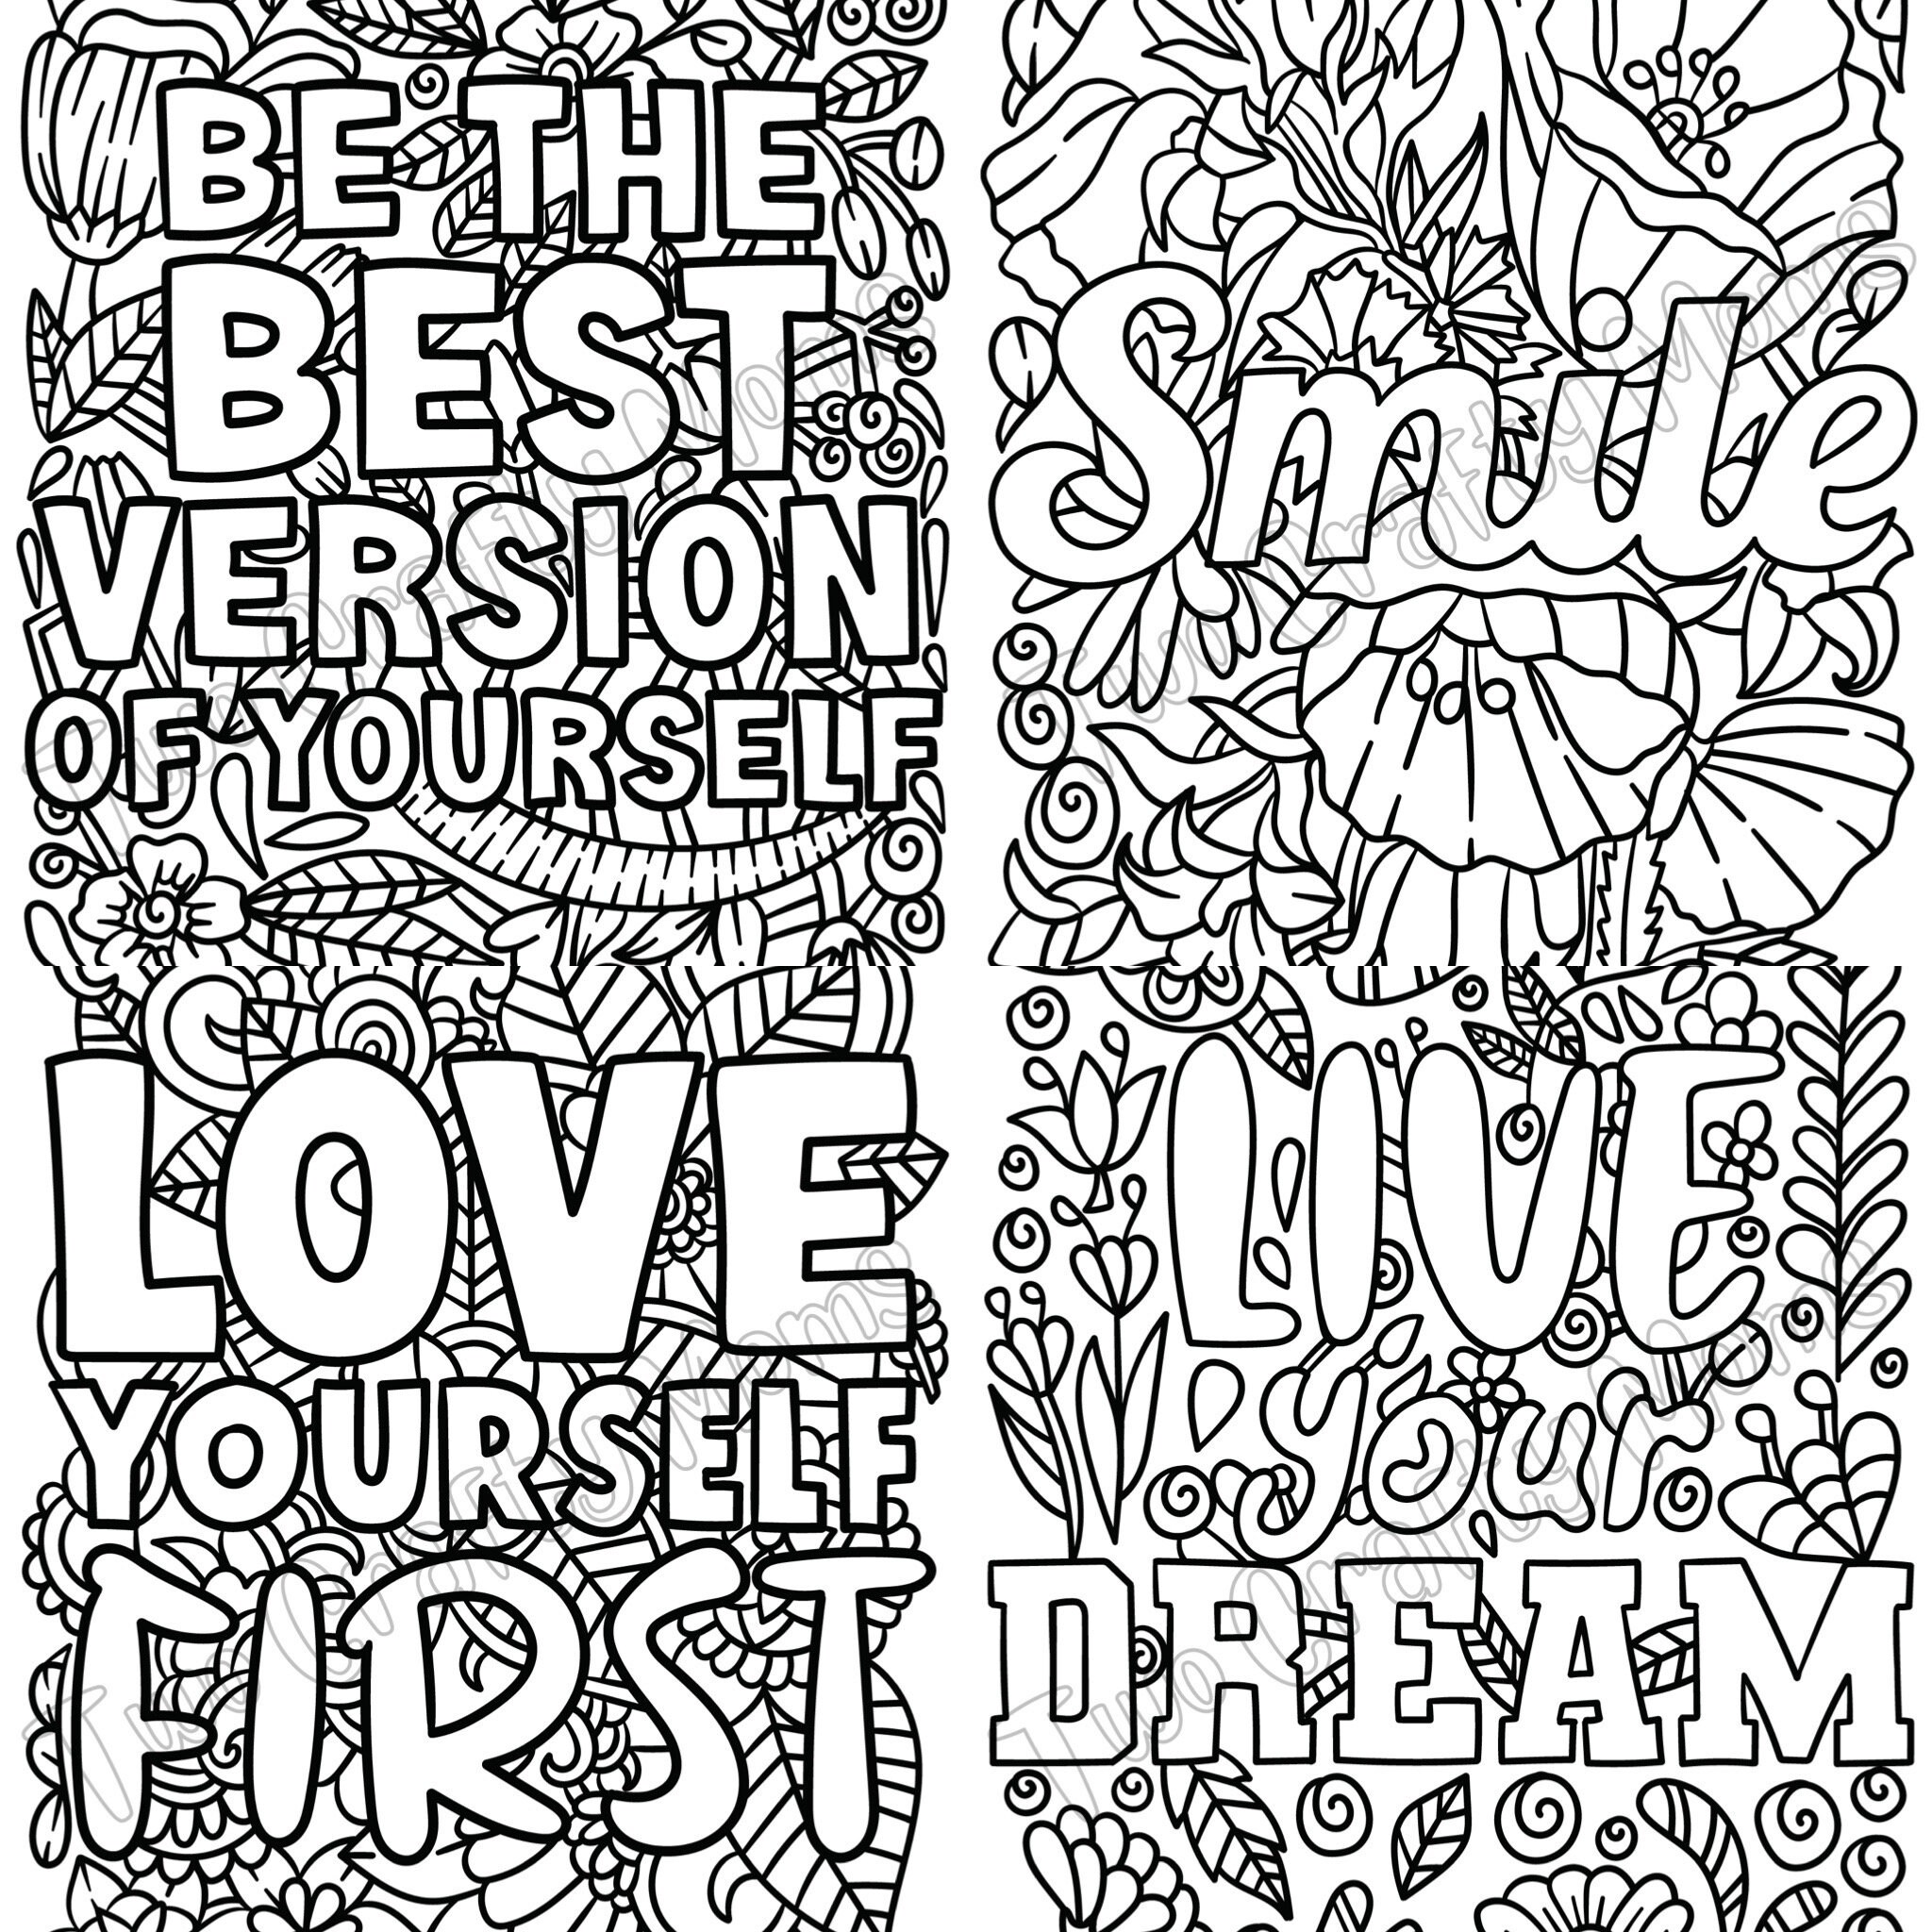 BE THE
BEST
VERSION
OF YOURSELF
Two Crafty Moms
Smile
Two Crafty Moms
LOVE
YOURSELF
FIRST
Two Crafty Moms
LIVE
Your
DREAM
Two Crafty Moms